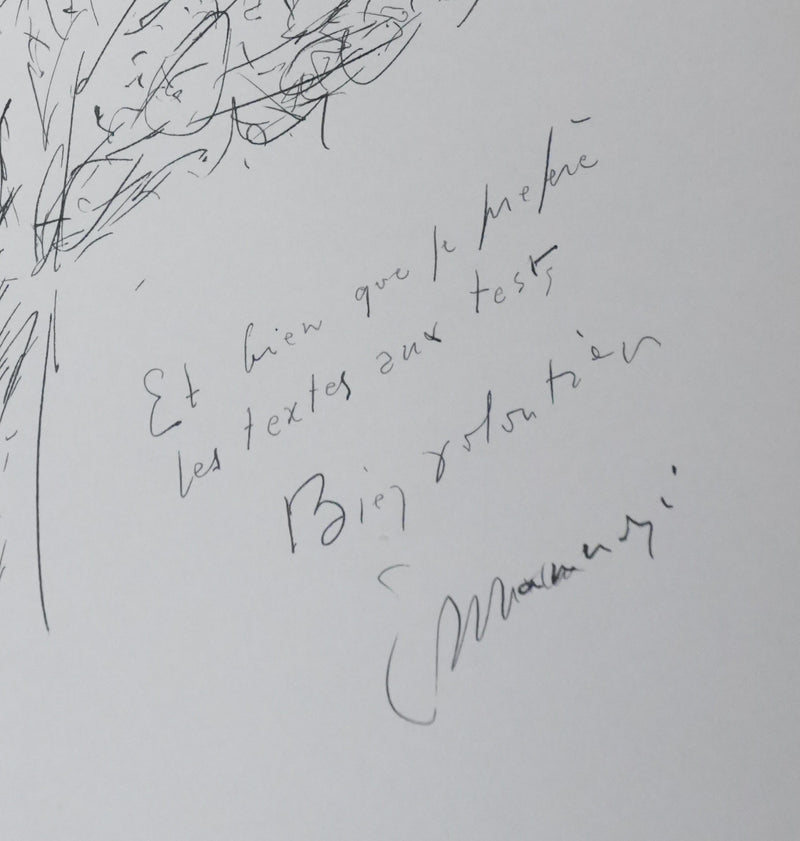 Et bien que je préfère
les textes aux tests
Bien volontiers